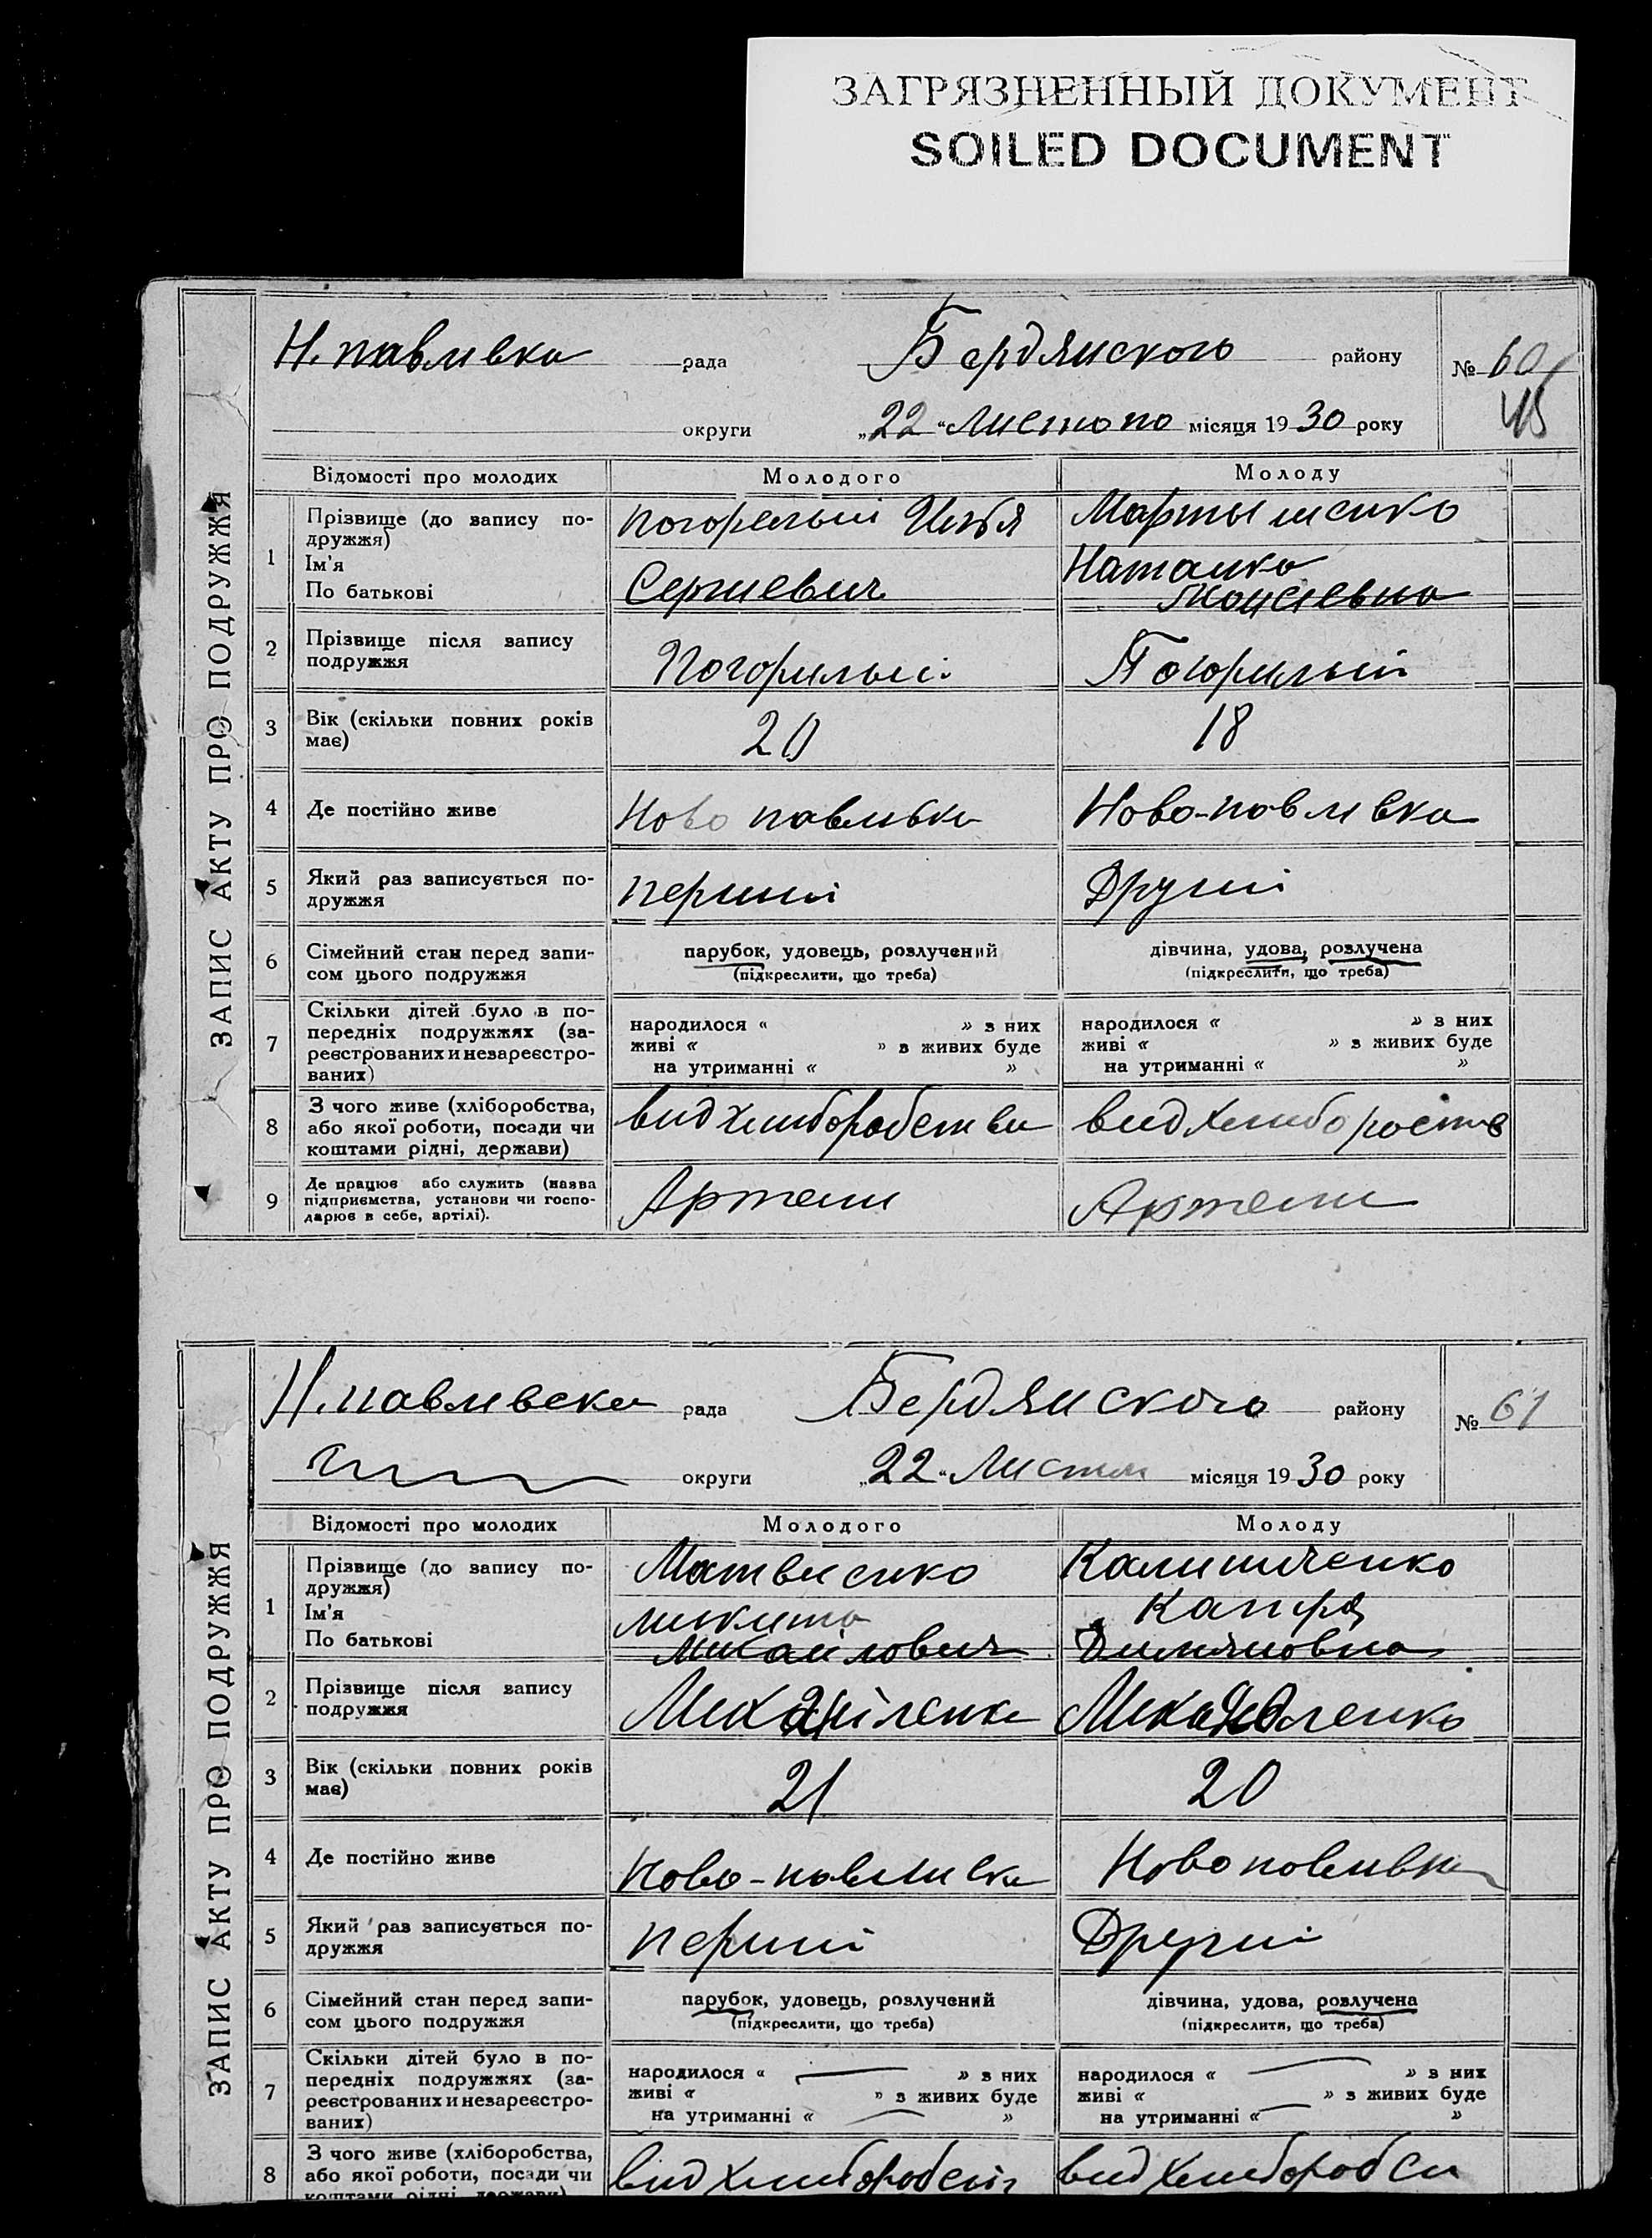 ЗАГРЯЗНЕННЫЙ ДОКУМЕНТ
SOILED DOCUMENT
ЗАПИС АКТУ ПРО ПОДРУЖЖЯ
Н. павливка рада Бердянского району № 60
45
округи „22“ Листопо місяця 1930 року
Відомості про молодих Молодого Молоду
1 Прізвище (до запису по-
дружжя)
Ім'я
По батькові
Погорелый Илья Мартыненко
Сергиевич Наталка
Моисіевна
2 Прізвище після запису
подружжя
Погорилый Погорилый
3 Вік (скільки повних років
має)
20 18
4 Де постійно живе Ново павливка Ново-павливка
5 Який раз записується по-
дружжя
перший Другий
6 Сімейний стан перед запи-
сом цього подружжя
парубок, удовець, розлучений дівчина, удова, розлучена
(підкреслити, що треба) (підкреслити, що треба)
7 Скільки дітей було в по-
передніх подружжях (за-
реєстрованих и незареєстро-
ваних)
народилося « » з них народилося « » з них
живі « » з живих буде живі « » з живих буде
на утриманні « » на утриманні « »
8 З чого живе (хліборобства,
або якої роботи, посади чи
коштами рідні, держави)
вид хлиборобства вид хлибороств
9 Де працює або служить (назва
підприємства, установи чи госпо-
дарює в себе, артілі).
Артели Артели
ЗАПИС АКТУ ПРО ПОДРУЖЖЯ
Н. павливска рада Бердянского району № 61
округи „22“ Листоп місяця 1930 року
Відомості про молодих Молодого Молоду
1 Прізвище (до запису по-
дружжя)
Ім'я
По батькові
Матвиенко Калиниченко
Микита
Михайлович Димяновна
2 Прізвище після запису
подружжя
3 Вік (скільки повних років
має)
21 20
4 Де постійно живе Ново-павливка Новопавливка
5 Який раз записується по-
дружжя
перший Другий
6 Сімейний стан перед запи-
сом цього подружжя
парубок, удовець, розлучений дівчина, удова, розлучена
(підкреслити, що треба) (підкреслити, що треба)
7 Скільки дітей було в по-
передніх подружжях (за-
реєстрованих и незареєстро-
ваних)
народилося « — » з них народилося « — » з них
живі « » з живих буде живі « » з живих буде
на утриманні « — » на утриманні « — »
8 З чого живе (хліборобства,
або якої роботи, посади чи
коштами рідні, держави)
вид хлиборобст вид хлиборобси